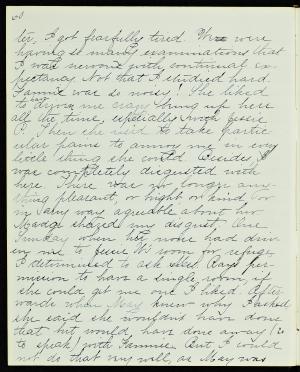 60
ter. I got fearfully tired. We were
having so many examinations that
I was nervous with continual ex-
pectancy. Not that I studied hard.
Fannie was so noisy! She liked
to drive me crazy being up here
all the time, especially with Jessie
P. Then she used to take partic-
ular pains to annoy me in every
little thing she could. Besides, I
was completely disgusted with
her. There was no longer any-
thing pleasant, or bright or kind, or
in any way agreeable about her.
Madge shared my disgust. One
Sunday when her noise had driv-
en me to room for refuge
I determined to ask Miss Ray's per-
mission to have a single room, if
she could get me one I liked. After-
wards when May knew why I asked
she said she wouldn't have done
that but would have done away (so
to speak) with Fannie. But I could
not do that very well, as May was